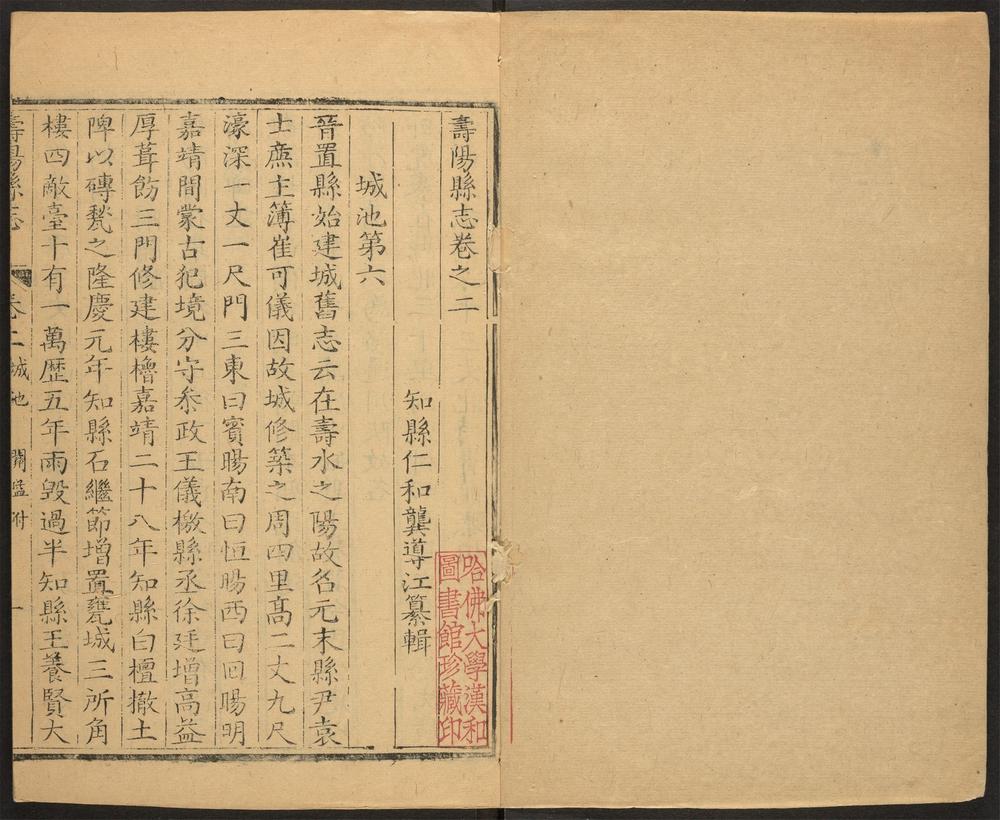 壽陽縣志卷之二
知縣仁和龔導江纂輯
城池第六
晉置縣始建城舊志云在壽水之陽故名元末縣尹袁
士廡主簿崔可儀因故城修築之周四里高二丈九尺
濠深一丈一尺門三東曰賓暘南曰恒暘西曰回暘明
嘉靖間蒙古犯境分守叅政王儀檄縣丞徐廷增高益
厚葺飭三門修建樓櫓嘉靖二十八年知縣白檀撤土
陴以磚甃之隆慶元年知縣石繼節增置甕城三所角
樓四敵臺十有一萬歷五年雨毁過半知縣王養賢大
壽陽縣志 卷二 城池 關 附 一
哈佛大學漢和
圖書館珍藏印